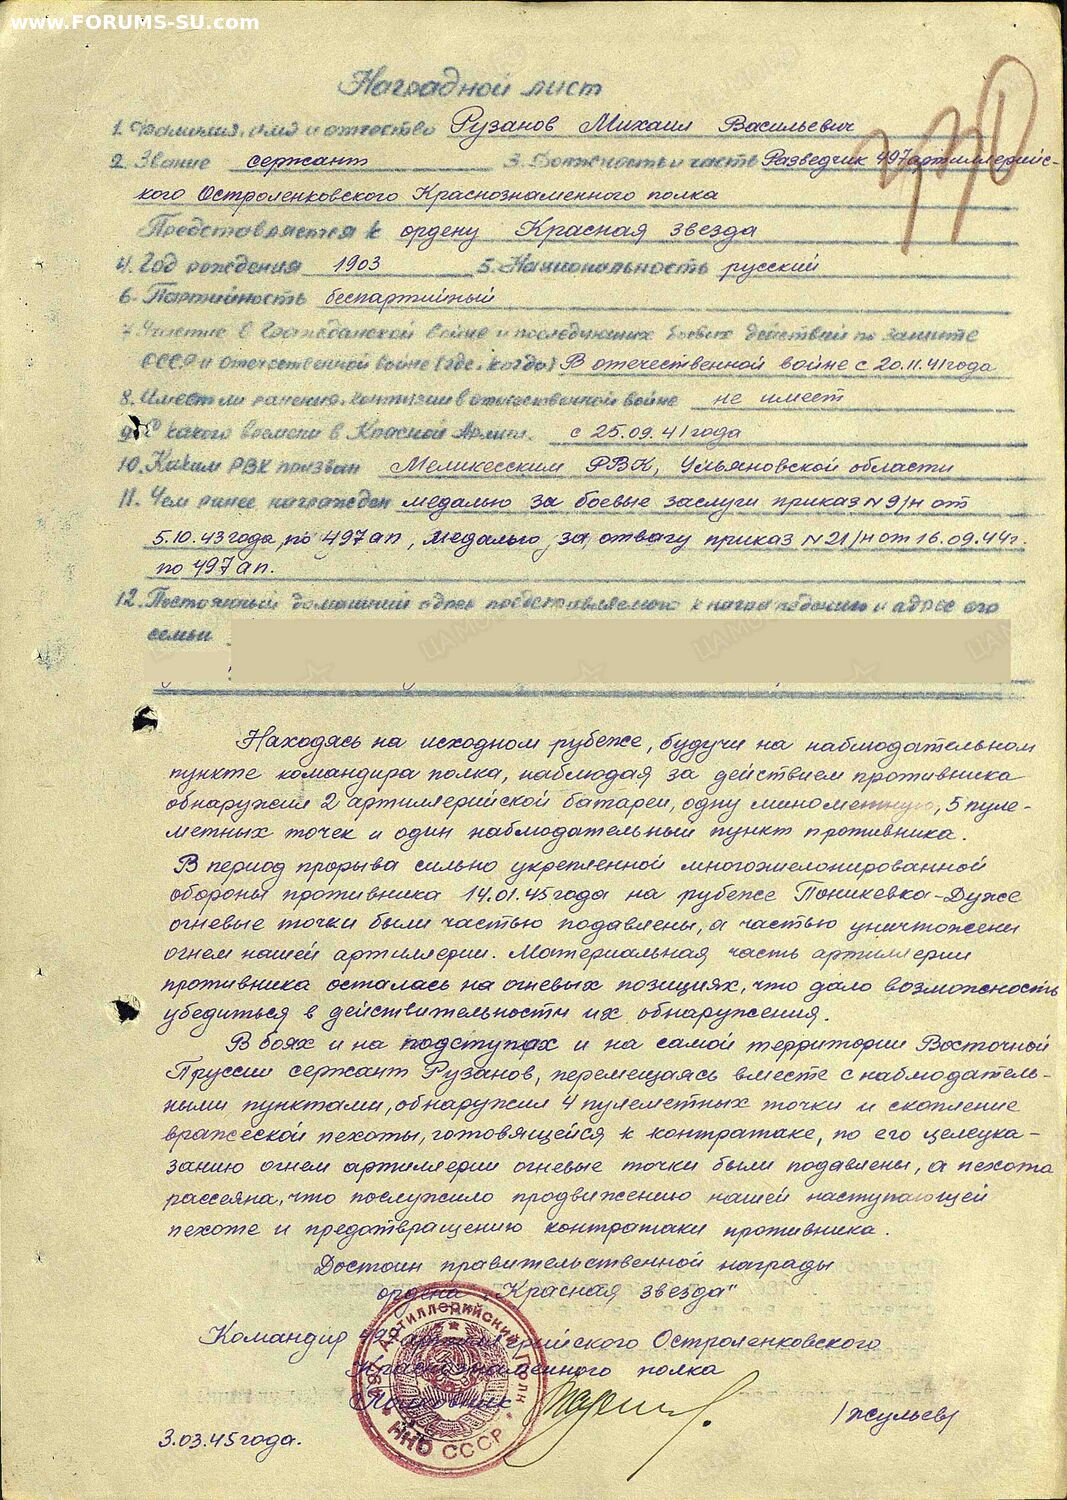 www.FORUMS-SU.com
Наградной лист
1. Фамилия, имя и отчество Рузанов Михаил Васильевич
2. Звание сержант 3. Должность и часть Разведчик 497 артиллерийс-
кого Остроленковского Краснознаменного полка
Представляется к ордену Красная звезда
4. Год рождения 1903 5. Национальность русский
6. Партийность беспартийный
7. Участие в Гражданской войне и последующих боевых действий по защите
СССР и отечественной войне (где, когда) В отечественной войне с 20.11.41 года
8. Имеет ли ранения, контузии в отечественной войне не имеет
9. С какого времени в Красной Армии. с 25.09.41 года
10. Каким РВК призван Меликесским РВК, Ульяновской области
11. Чем ранее награжден медалью за боевые заслуги приказ N 9/н от
5.10.43 года по 497 ап, медалью за отвагу приказ N 21/н от 16.09.44 г.
по 497 ап.
12. Постоянный домашний адрес представляемого к награждению и адрес его
семьи
Находясь на исходном рубеже, будучи на наблюдательном
пункте командира полка, наблюдая за действием противника
обнаружил 2 артиллерийской батареи, одну минометную, 5 пуле-
метных точек и один наблюдательный пункт противника.
В период прорыва сильно укрепленной многоэшелонированной
обороны противника 14.01.45 года на рубеже Поникевка-Дуже
огневые точки были частью подавлены, а частью уничтожены
огнем нашей артиллерии. Материальная часть артиллерии
противника осталась на огневых позициях, что дало возможность
убедиться в действительности их обнаружения.
В боях и на подступах и на самой территории Восточной
Пруссии сержант Рузанов, перемещаясь вместе с наблюдатель-
ными пунктами, обнаружил 4 пулеметных точки и скопление
вражеской пехоты, готовящейся к контратаке, по его целеука-
занию огнем артиллерии огневые точки были подавлены, а пехота
рассеяна, что послужило продвижению нашей наступающей
пехоте и предотвращению контратаки противника.
Достоин правительственной награды
ордена "Красная звезда"
Командир 497 артиллерийского Остроленковского
Краснознаменного полка
Полковник /Жульев/
3.03.45 года.
497 Артиллерийский Полк
НКО СССР